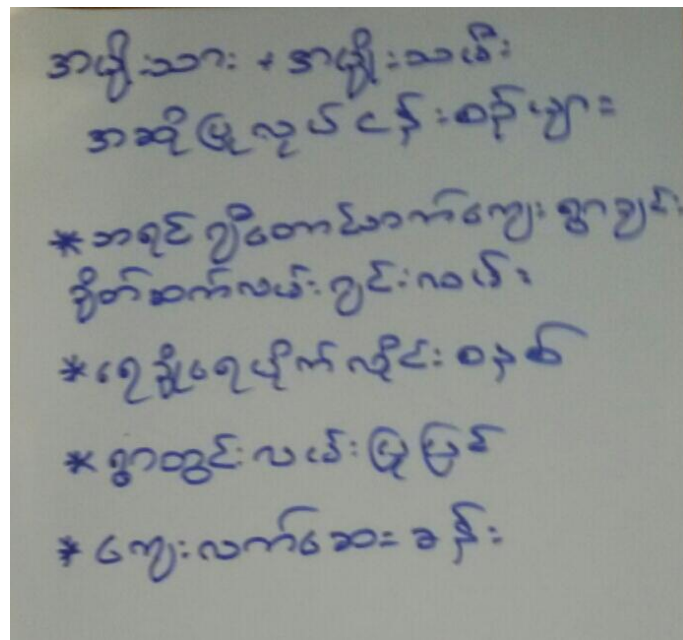 အမျိုးသား + အမျိုးသမီး
အဆိုပြုလုပ်ငန်းစဉ်များ
*ဘရင်ဂျီတောင်ဘက်ကျေးရွာချင်း
ချိတ်ဆက်လမ်းခင်းလမ်း
*ရေချိုရေပိုက်လိုင်းစနစ်
*ရွာတွင်းလမ်းပြုပြင်
*ကျေးလက်ဆေးခန်း